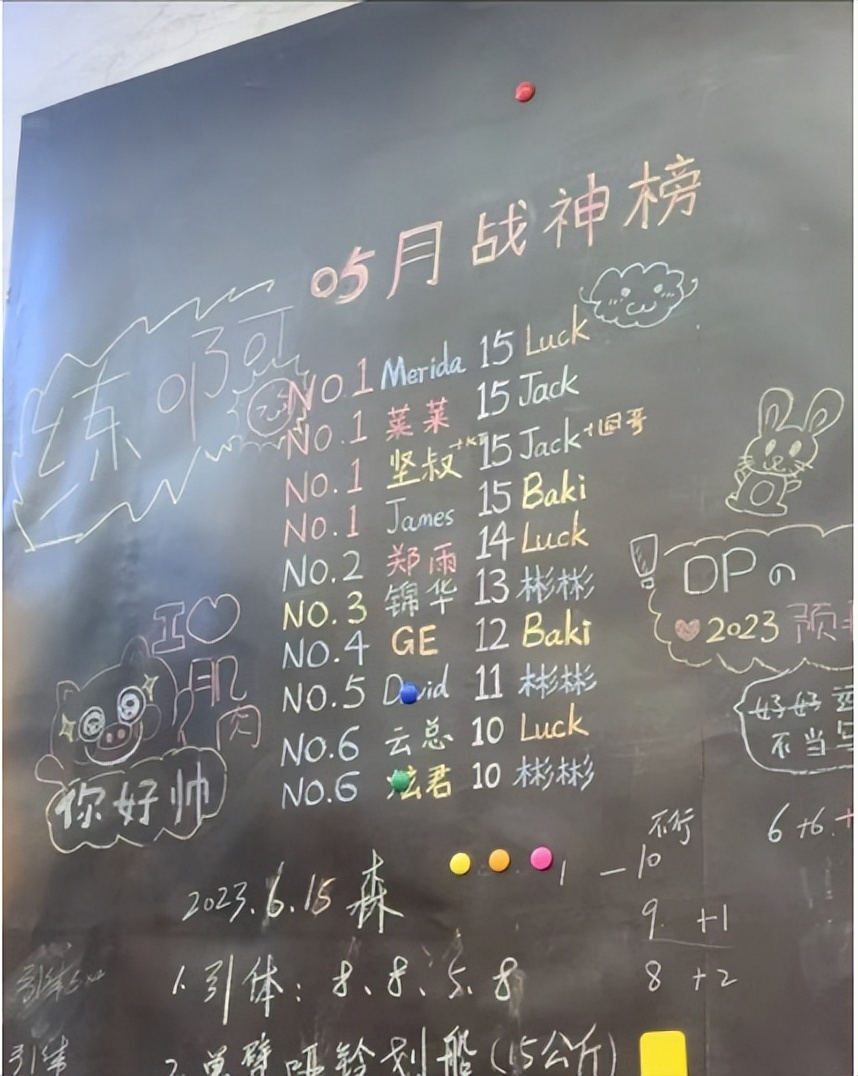 05月战神榜
练啊
NO.1 Merida 15 Luck
NO.1 菜菜 15 Jack
NO.1 坚叔 15 Jack+国哥
NO.1 James 15 Baki
NO.2 郑雨 14 Luck
NO.3 锦华 13 彬彬
NO.4 GE 12 Baki
NO.5 David 11 彬彬
NO.6 云总 10 Luck
NO.6 炫君 10 彬彬
I♡
肌
肉
你好帅
DPの
2023预
好好
不当
不行
6+6.+
1 —10
9 +1
8 +2
2023.6.15 森
1.引体：8、8、5、8
引体5×2
引体
2.单臂哑铃划船(15公斤)